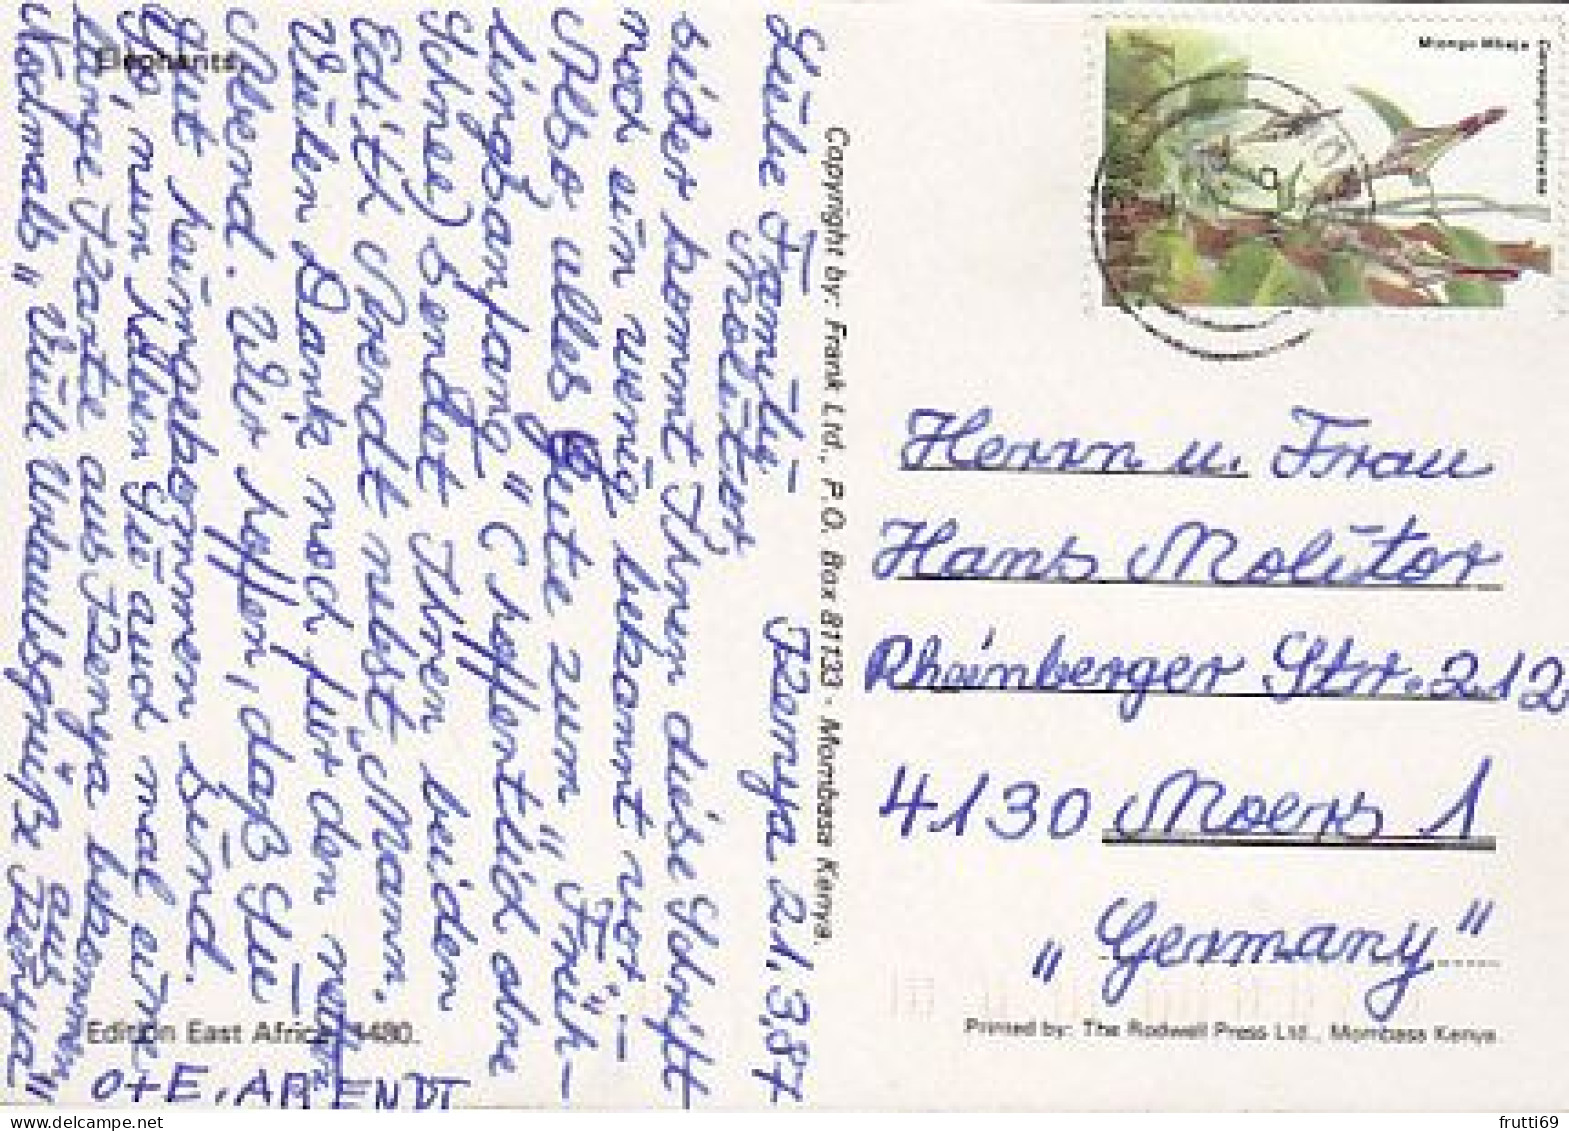 Elephants.
Liebe Familie Kenya 21.3.87
Molitor,
leider kommt Ihnen diese Schrift
noch ein wenig bekannt vor!
Also alles Gute zum "Früh-
lingsanfang" (hoffentlich ohne
Schnee) sendet Ihnen beiden
Edith Arendt nebst Mann.
Vielen Dank noch für den
Abend. Wir hoffen, daß Sie
gut heimgekommen sind.
So, nun haben Sie auch mal eine
lange Karte aus Kenya bekommen
Nochmals "Viele Urlaubsgrüße aus Kenya"
O+E. ARENDT
Edition East Africa 1480.
Copyright by: Frank Ltd., P.O. Box 81133 - Mombasa Kenya.
Herrn u. Frau
Hans Molitor
Rheinberger Str. 212
4130 Moers 1
"Germany"
Printed by: The Rodwell Press Ltd., Mombasa Kenya.
frutti69